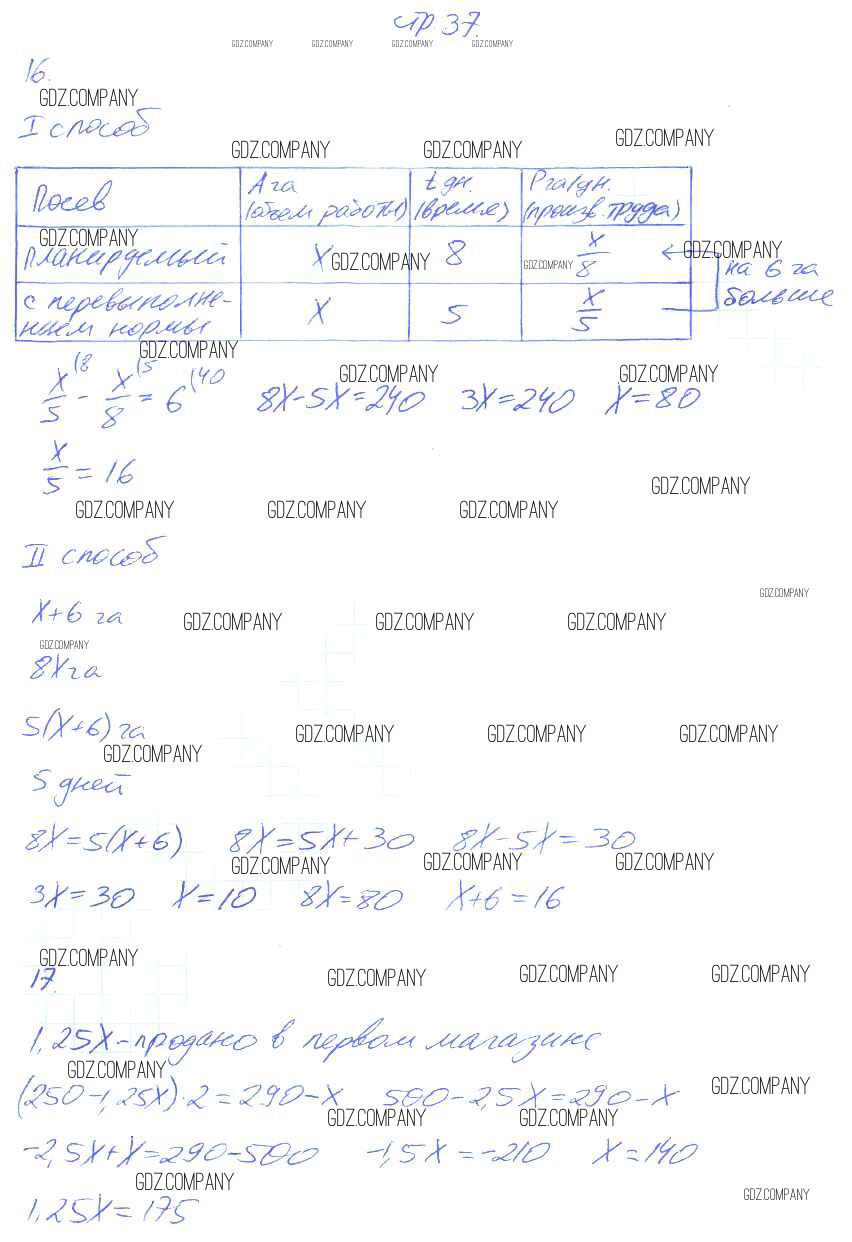 стр. 37.
GDZ.COMPANY GDZ.COMPANY GDZ.COMPANY GDZ.COMPANY
16.
GDZ.COMPANY
I способ
GDZ.COMPANY GDZ.COMPANY GDZ.COMPANY
Посев A га t дн. P га/дн.
(объем работы) (время) (произв. труда)
GDZ.COMPANY
планируемый X GDZ.COMPANY 8 GDZ.COMPANY x/8 GDZ.COMPANY
на 6 га
больше
с перевыполне-
нием нормы X 5 x/5
GDZ.COMPANY
x/5 (8 - x/8 (5 = 6 (40 8X-5X=240 3X=240 X=80
GDZ.COMPANY GDZ.COMPANY
x/5 = 16
GDZ.COMPANY
GDZ.COMPANY GDZ.COMPANY GDZ.COMPANY
II способ
GDZ.COMPANY
X+6 га GDZ.COMPANY GDZ.COMPANY GDZ.COMPANY
GDZ.COMPANY
8X га
5(X+6) га GDZ.COMPANY GDZ.COMPANY GDZ.COMPANY
GDZ.COMPANY
5 дней
8X=5(X+6) 8X=5X+30 8X-5X=30
GDZ.COMPANY GDZ.COMPANY GDZ.COMPANY
3X=30 X=10 8X=80 X+6=16
GDZ.COMPANY
17. GDZ.COMPANY GDZ.COMPANY GDZ.COMPANY
1,25X-продано в первом магазине
GDZ.COMPANY GDZ.COMPANY
(250-1,25X)·2=290-X 500-2,5X=290-X
GDZ.COMPANY GDZ.COMPANY
-2,5X+X=290-500 -1,5X=-210 X=140
GDZ.COMPANY GDZ.COMPANY
1,25X=175